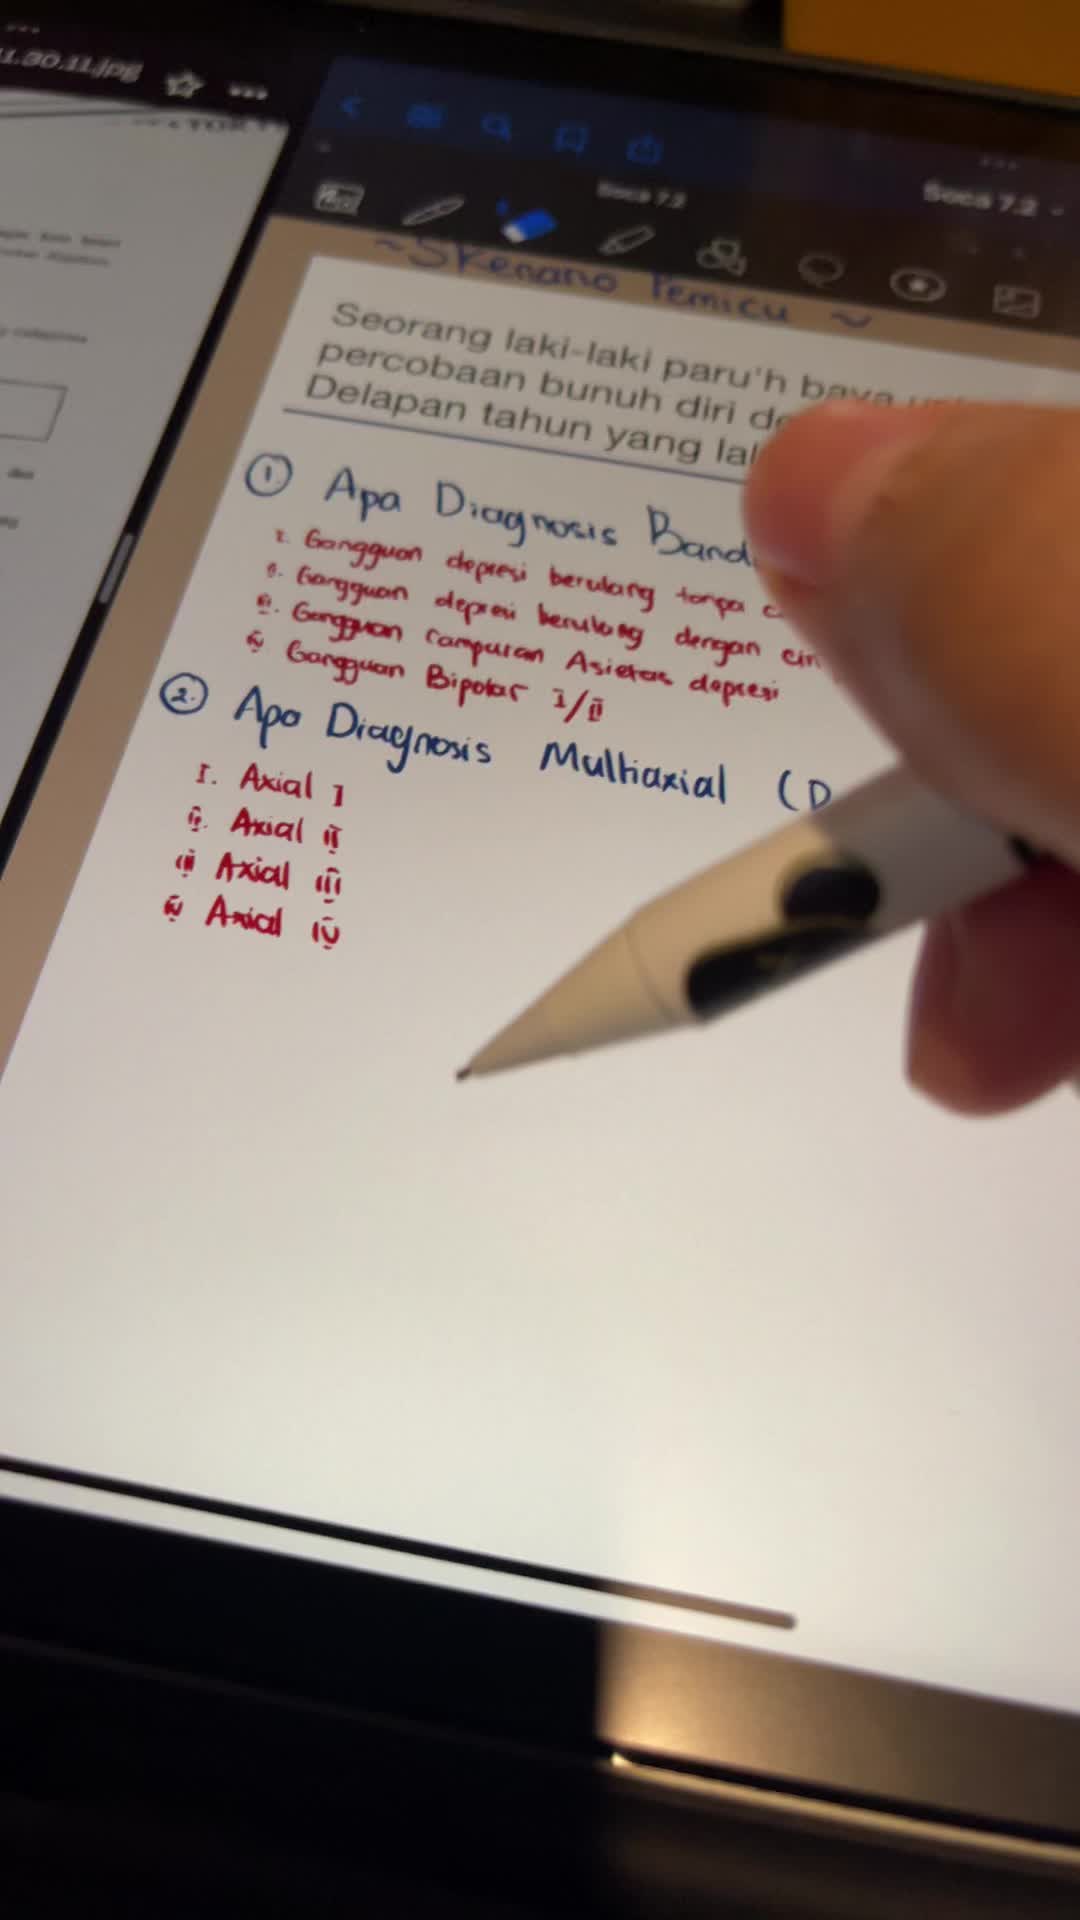 1.30.11.jpg
Soca 7.2
Soca 7.2
~Skenario Pemicu ~
Seorang laki-laki paru'h baya
percobaan bunuh diri de
Delapan tahun yang lal
1. Apa Diagnosis Band
I. Gangguan depresi berulang tanpa
II. Gangguan depresi berulang dengan cir
III. Gangguan Campuran Asietas depresi
IV Gangguan Bipolar I/II
2. Apa Diagnosis Multiaxial (D
I. Axial I
II. Axial II
III Axial III
IV Axial IV